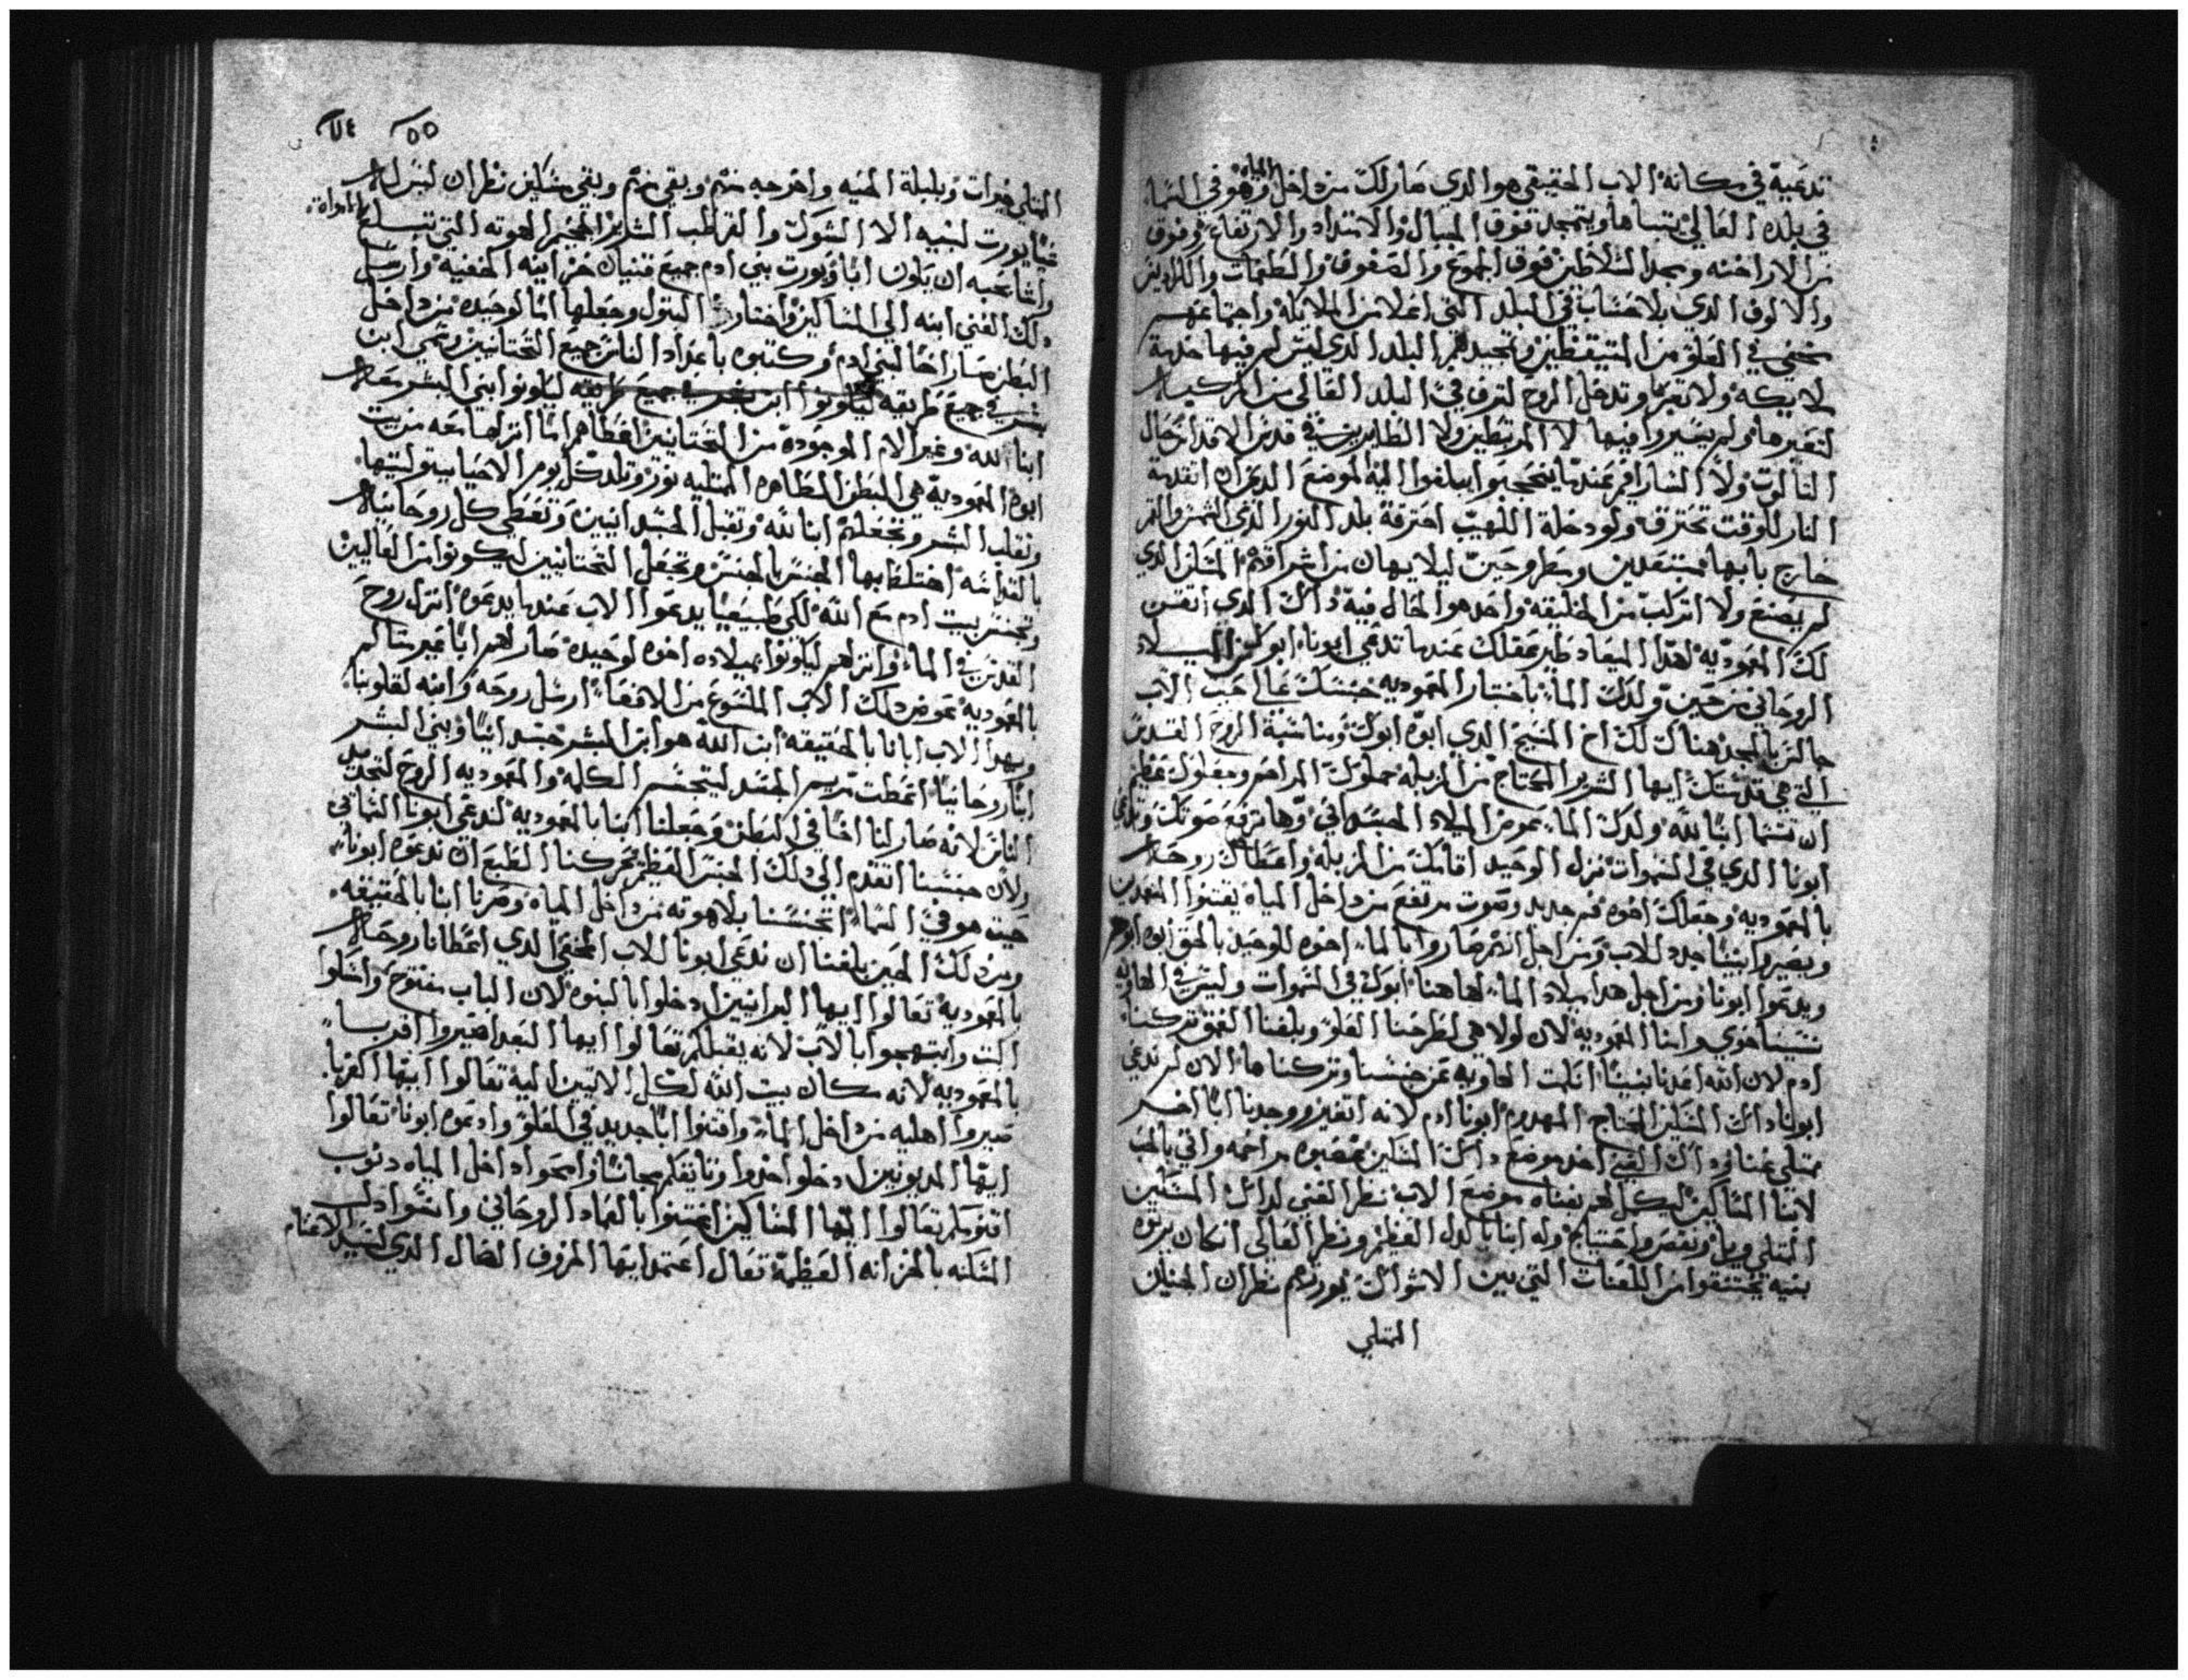 تدعية في مكانه الاب الحقيقي هوا لدي صار لك من داخل المياه وهو في السما
في بلده العالي يتباها ويتمجد فوق الجبال والامتداد والارتفاع وفوق
من الاراخنه ومجد السلاطين فوق الجموع والصفوف والطغمات والكراديس
والالوف الدي بلا حساب في البلد التي اعلا من الملايكه واجتماعهم
مخفي في العلو من المتيقظين وتمجيدهم البلد الدي ليس لم فيها خدمة
لايكه ولا تعبر وتدخل الروح لترف في البلد العالي من المركبات
لتعبرها ولم يسيروا فيها لا المرتبطين ولا الطايرين في قدس الاقداس حال
التالوت ولا السارافيم عندها ينحجبوا يبلغوا اليه الموضع الدي تراه اتقدمة
النار للوقت تحترق ولو دخلة اللهيب احترقة بلد النور الدي الشمس والقمر
خارج بابها مستبعدين ومطروحين ليلا يهان من اشراقهم المسكن الدي
لم يصنع ولا اتركب من الخليقه واحد هو الحال فيه داك الدي اتقن
لك المعموديه لهدا الميعاد طير عقلك عندها تدعي ابونا ابوك من الميلاد
الروحاني من حين ولدك الماء باختيار المعموديه جنسك عالي حيت الاب
جالس بالمجد هناك لك اخ المسيح الدي ابوه ابوك ومناسبة الروح القدس
التي هي قدستك ايها الشرير المحتاج من المزبله مملوك المراحم ومفلوك عظيم
ان تسما ابنا لله ولدك الماء عوض الميلاد الجسداني وها ترفع صوتك وتدعي
ابونا الدي في السموات نزل الوحيد اقامك من المزبله واعطاك روحا
بالمعموديه وجعلك اخوه فم جديد وصوت مرتفع من داخل المياه يقتنوا المعمدين
ويصيروا بنينا جدد للاب ومن اجل انهم صاروا بالماء اخوه للوحيد بالحق ابوه ابوهم
ويدعوا ابونا ومن اجل هدا ميلاد الماء لها هنا ابوك في السموات وليس في الهاويه
نسينا حوي وامنا المعموديه لان لولا هي لطرحنا العلو وبلغنا العمق تركنا
ادم لان الله اعدنا بنينا اتكلت الهاويه عن جنسنا وتركناها الان لم ندعي
ابونا داك المسكين المحتاج المهدوم ابونا ادم لانه اتغير ووجدنا ابا اخر
ممتلي غنا وداك الغني اخد موضع داك المسكين عصبوه مراحمه واتي بالحب
لابنا المساكين ليكمل لهم بغناه موضع الاب نظر الغني لداك المسكين
الممتلي ويل ونقص واحتياج وله ابنا بالدل العظيم ونظر العالي انكان يرتوه
بنيه يختنقوا من اللعنات التي بين الاشواك يورتهم نظر ان الجنان
الممتلي
٥٥
الممتلي خيرات وبلبلة الحيه واخرجه منهم وبقي منهم وبقي مسكين نظر ان ليس له
شيا يورت لبنيه الا الشوك والقراطب الشرير المخيم لموته التي تتسلح بالمواة
واشا بحبه ان يكون ابا ويورت بني ادم جميع قنيان خزاينه المخفيه وارسل
دلك الغني ابنه الي المساكين واختار البتول وجعلها اما لوحيده من داخل
البطن صار اخا لبني ادم وكتبوه باعداد الناس جميع التحتانيين وتسمي ابن
بشر في جميع طرايقه ليكونوا ابني البشر معا
ابنا لله وغير الام الموجوده من التحتانيين اعطاهم اما انزلها معه من بيت
ابوه المعموديه هي البطن الطاهره الممتليه نور وتلد كل يوم الاحيا بيتوليتها
وتقلب البشر وتجعلهم ابنا لله وتقبل الجسدانيين وتعطي كل روحانيا
بالقداسه اختلط بها الجنس بالجنس وتجعل التحتانيين ليكونوا من العاليين
وتجنس بيت ادم مع الله لكي طبيعيا يدعوا الاب عندما يدعوه انزل روح
القدس في الماء وانزلهم ليكونوا بميلاده اخوه لوحيده صار لهم ابا غير متالم
بالمعموديه عوض دلك الاب الملسوع من الافعاء ارسل روحه وابنه لقلوبنا
وبهدا الاب ابانا بالحقيقه ابن الله هو ابن البشر جسدانيا وبني البشر
ابنا روحانيا اعطت مريم الجسد ليتجسم الكلمه والمعموديه الروح لتجدد
الناس لانه صار لنا اخا في البطن وجعلنا ابنا بالمعموديه لندعي ابونا السماتي
ولان جنسنا اتقدم الي دلك الجنس العظيم تحركنا الطبع ان ندعوه ابونا
حيت هو في السماء اتجنسنا بلاهوته من داخل المياه وصرنا ابنا بالحقيقه
ومن دلك الحين بلغنا ان ندعي ابونا للاب المخفي الدي اعطانا روحا
بالمعموديه تعالوا ايها البرانيين ادخلوا بالبنوه لان الباب مفتوح وادخلوا
البيت وابتهجوا بالاب لانه يقبلكم تعالوا ايها البعدا صيروا اقربا
بالمعموديه لانه مكان بيت الله لكل الاتيين اليه تعالوا ايها الغربا
صيروا اهليه من داخل الماء واقتنوا ابا جديد في العلو وادعوه ابونا تعالوا
ايها المديونين ادخلوا اخدوا ورتا يفلكم مجانا وامحوا داخل المياه دنوب
اقنومكم تعالوا ايها المساكين اغتنوا بالعماد الروحاني وانسوا دل
المسكنه بالخزانه العظيمه تعال اعتمد ايها الخروف الضال الدي لسيد الاغنام